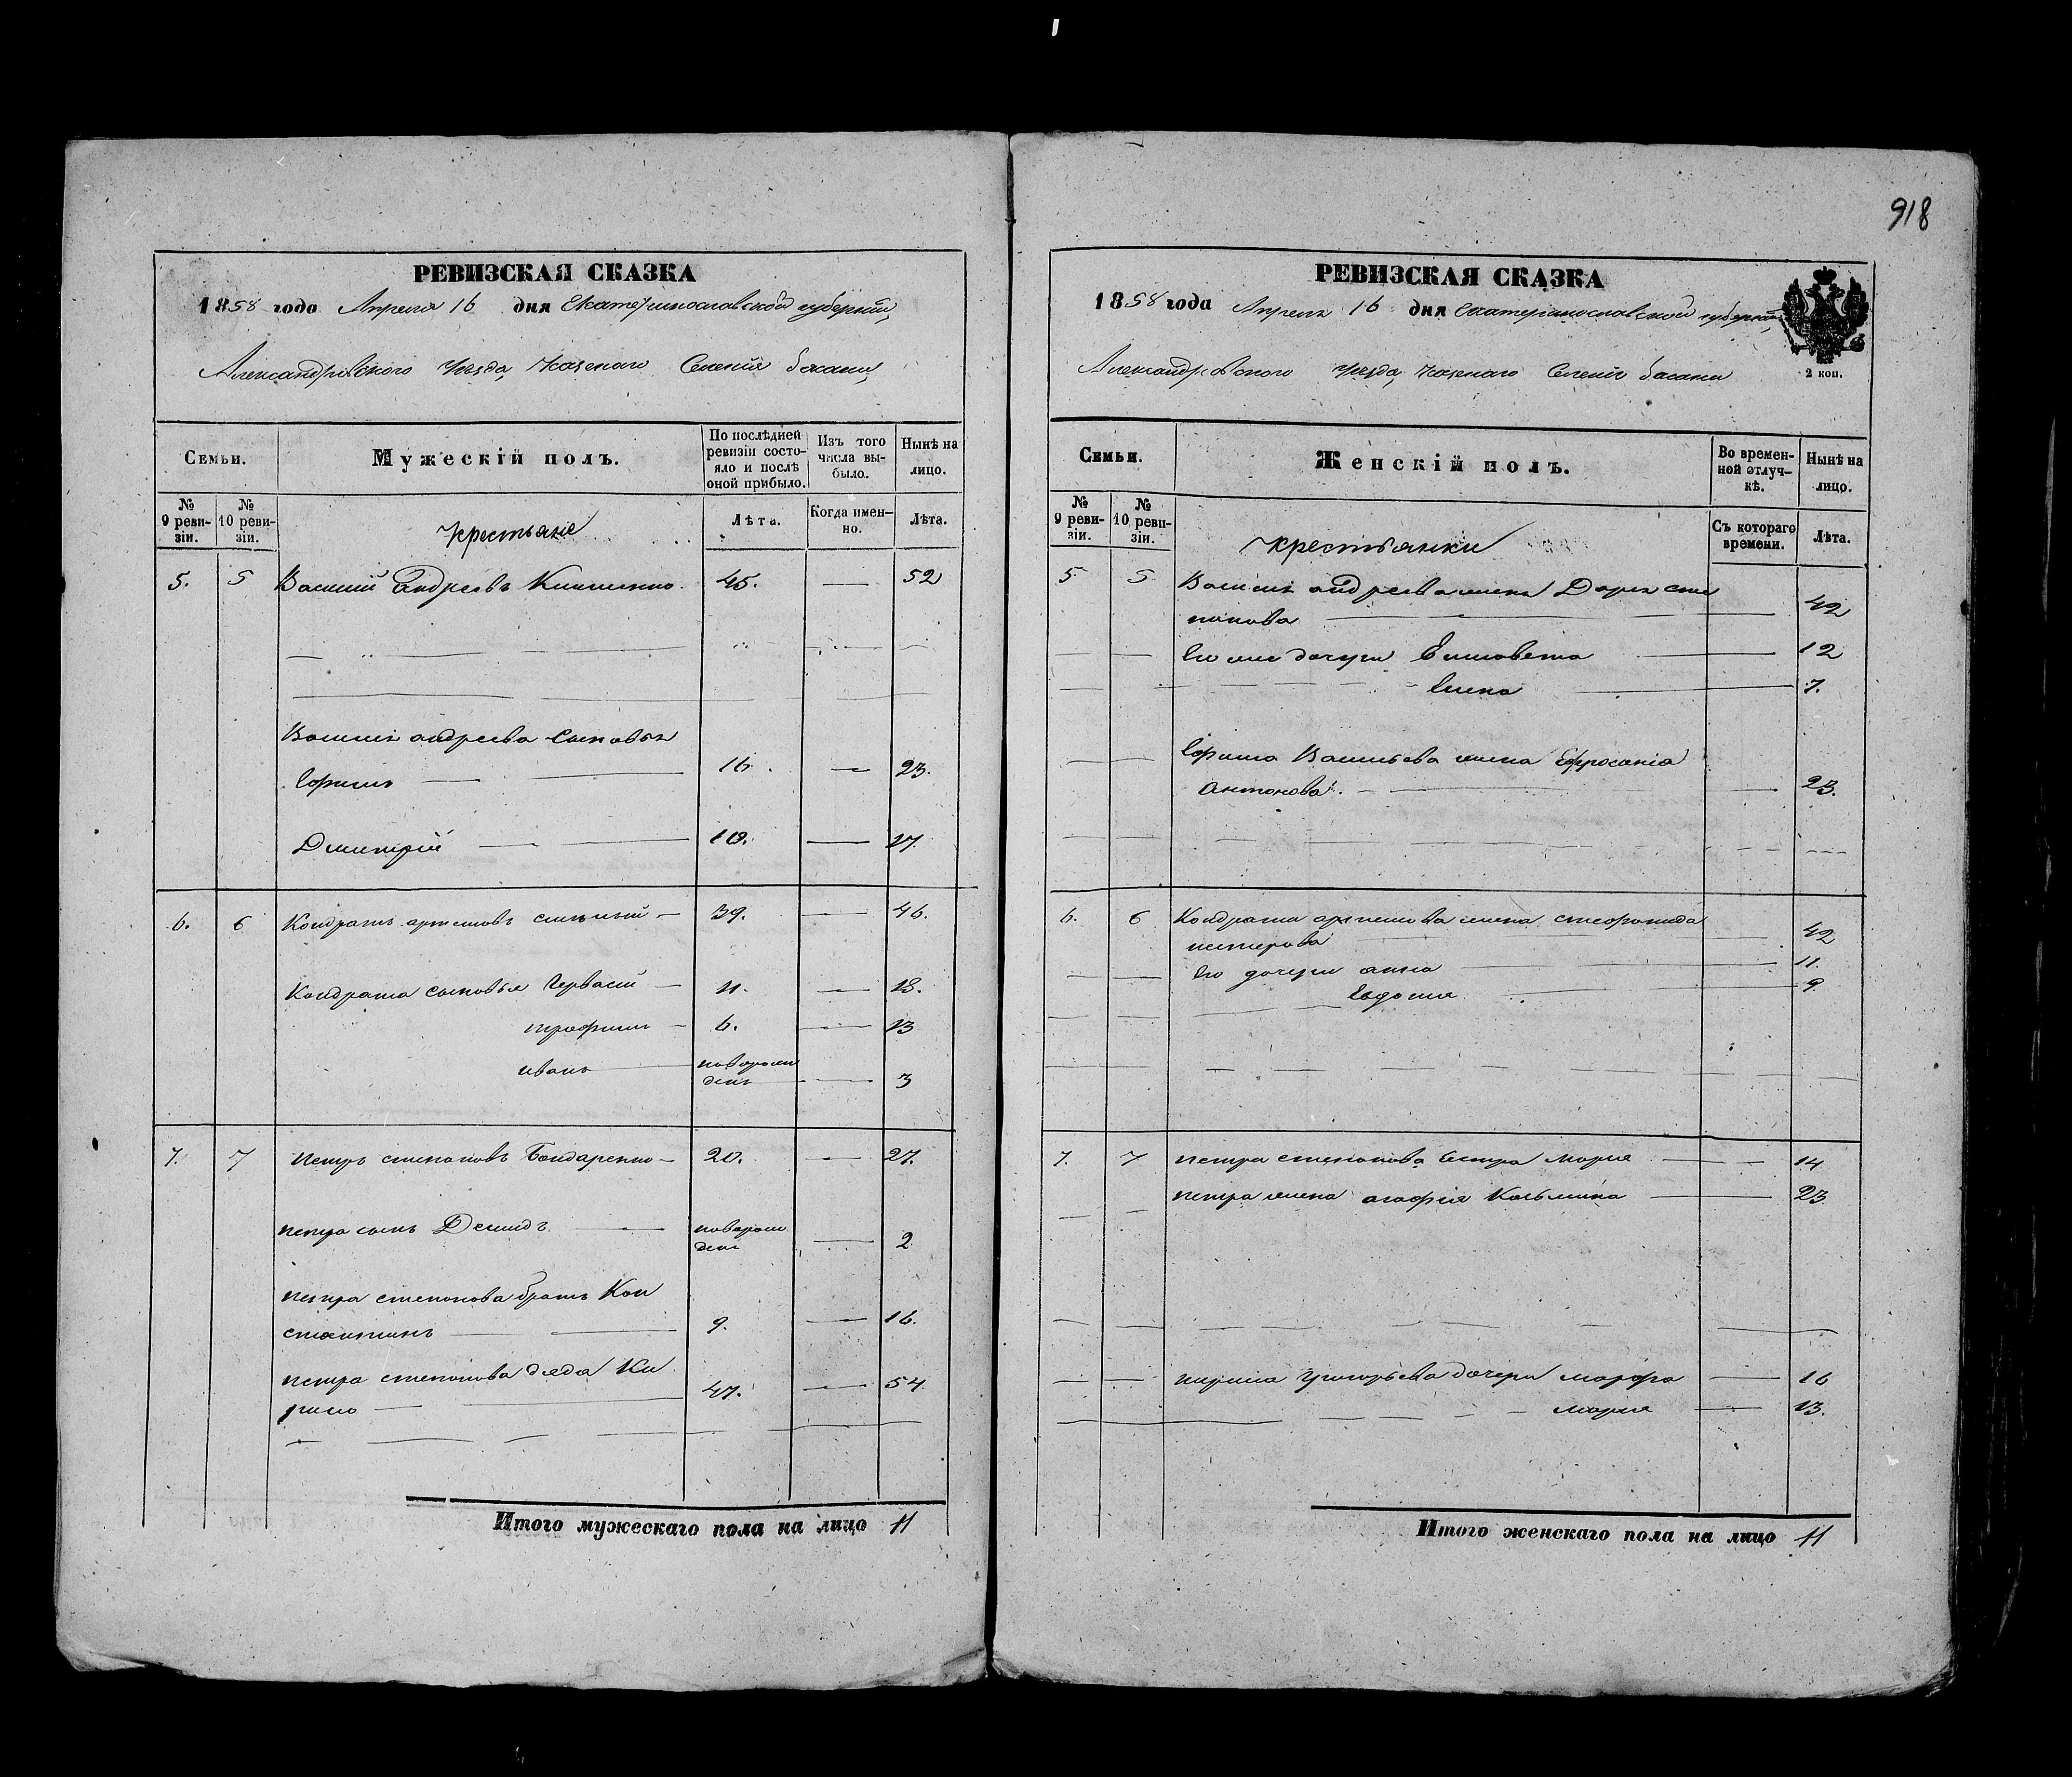 918
РЕВИЗСКАЯ СКАЗКА
1858 года Апреля 16 дня Екатеринославской губернии,
Александровского Уезда, Казенаго Селения Басани
Семьи.
Мужескій полъ.
По послѣдней ревизіи состо-
яло и послѣ
оной прибыло.
Изъ того
числа вы-
было.
Нынѣ на
лицо.
№
9 реви-
зіи.
№
10 реви-
зіи.
Крестьяне
Лѣта.
Когда имен-
но.
Лѣта.
5. 5 Василий Андреевъ 45. — 52
Василия андреева сыновья
Ефимъ 16. — 23.
Дмитрій 10. — 17.
6. 6 Кондратъ артемовъ 39. — 46.
Кондрата сыновья Герваси 11. — 18.
трофимъ 6. — 13
иванъ новорож
денъ — 3
7. 7 петръ степановъ Бондаренко 20. — 27.
петра сынъ Демидъ новорож
денъ — 2
петра степанова братъ Кон
стантинъ 9. — 16.
петра степанова дядя Ки
рило 47. — 54
Итого мужескаго пола на лицо 11
РЕВИЗСКАЯ СКАЗКА
1858 года Апреля 16 дня Екатеринославской губернии,
Александровского Уезда, Казенаго Селения Басани
2 коп.
Семьи.
Женскій полъ.
Во времен-
ной отлуч-
кѣ.
Нынѣ на
лицо.
№
9 реви-
зіи.
№
10 реви-
зіи.
крестьянки
Съ котораго
времени.
Лѣта.
5 5 Василия андреева жена Дарья сте
панова 42
Его же дочери Елисавета 12
Елена 7.
Ефима Васильева жена Ефросинія
Антонова. 23.
6. 6 Кондрата артемова жена
нестерова 42
Его дочери анна 11.
Евдокия 9
7. 7 петра степанова сестра Мария 14
петра жена агафия Козьмина 23
кирила Григорьева дочери марфа 16
мария 13.
Итого женскаго пола на лицо 11